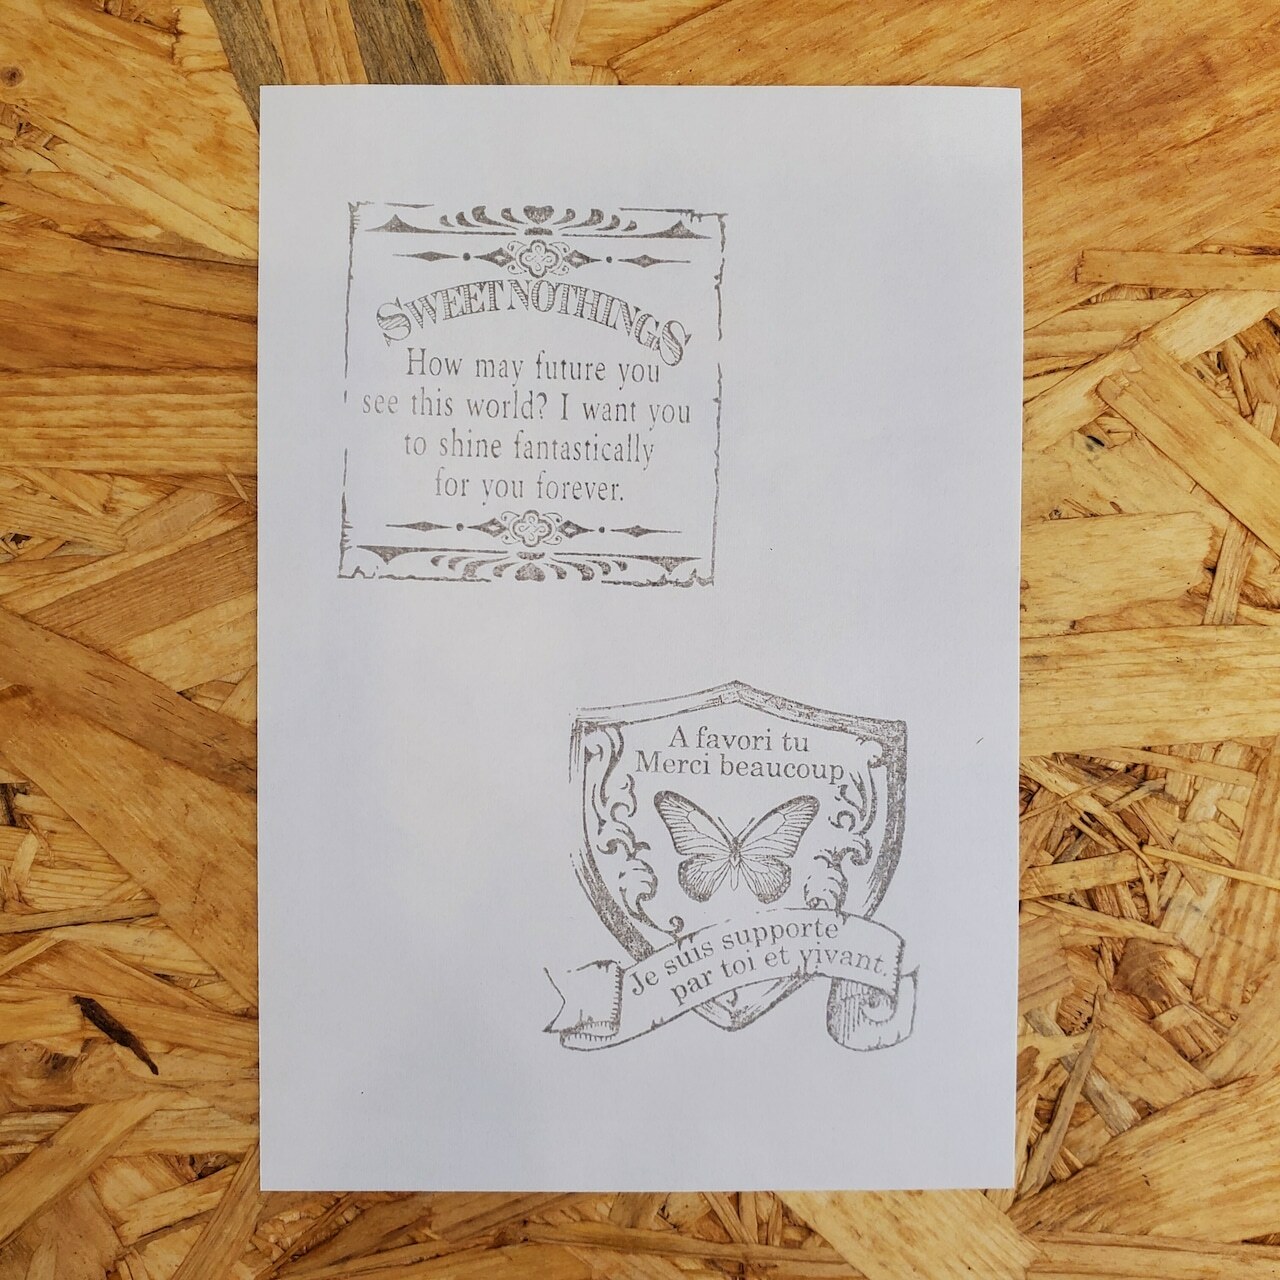 SWEET NOTHINGS
How may future you
see this world? I want you
to shine fantastically
for you forever.
A favori tu
Merci beaucoup
Je suis supporte
par toi et vivant.